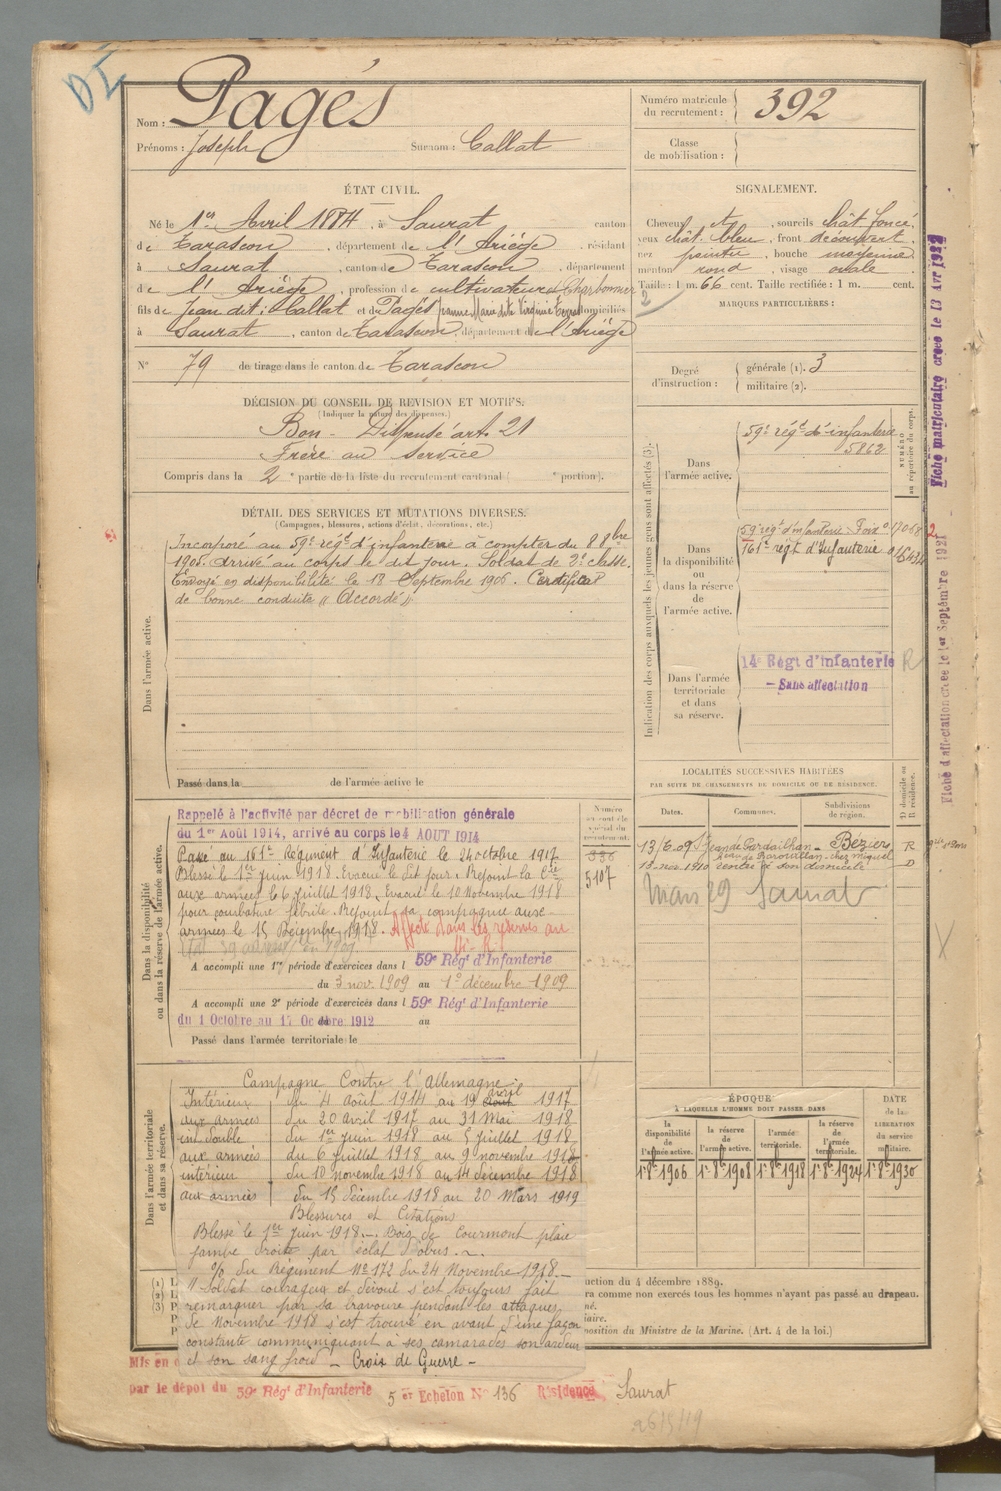 DI
Nom : Pagés
Prénoms : Joseph Surnom : Callat
Numéro matricule du recrutement : 392
Classe de mobilisation :
ÉTAT CIVIL.
Né le 1er Avril 1884, à Saurat canton
de Tarascon, département de l'Ariège, résidant
à Saurat, canton de Tarascon, département
de l'Ariège, profession de cultivateur Charbonnier
fils de Jean dit : Callat et de Pagés Jeanne Marie dite Virginie domiciliés
à Saurat, canton de Tarascon, département de l'Ariège
N° 79 de tirage dans le canton de Tarascon
SIGNALEMENT.
Cheveux et, sourcils chât foncé,
yeux chât. bleu, front découvert,
nez pointu, bouche moyenne
menton rond, visage ovale
Taille : 1 m. 66 cent. Taille rectifiée : 1 m. cent.
2
MARQUES PARTICULIÈRES :
Degré d'instruction : générale (1). 3
militaire (2).
DÉCISION DU CONSEIL DE REVISION ET MOTIFS.
(Indiquer la nature des dispenses.)
Bon - Dispensé art. 21
Frère au service
Compris dans la 2e partie de la liste du recrutement cantonal ( e portion).
DÉTAIL DES SERVICES ET MUTATIONS DIVERSES.
(Campagnes, blessures, actions d'éclat, décorations, etc.)
Dans l'armée active.
Incorporé au 59e régt d'infanterie à compter du 8 8bre
1905. Arrivé au corps le dit jour. Soldat de 2e classe.
Envoyé en disponibilité le 18 Septembre 1906. Certificat
de bonne conduite "Accordé"
Passé dans la de l'armée active le
Indication des corps auxquels les jeunes gens sont affectés (3).
NUMÉRO au répertoire du corps.
Dans l'armée active.
59e régt d'infanterie
5862
Dans la disponibilité ou dans la réserve de l'armée active.
59e régt d'infanterie Foix
161e régt d'Infanterie
Dans l'armée territoriale et dans sa réserve.
14e Régt d'Infanterie R
- Sans affectation
Fiche matriculaire créée le 13 Avr 1922
Fiche d'affectation créée le 1er Septembre 1921
LOCALITÉS SUCCESSIVES HABITÉES
PAR SUITE DE CHANGEMENTS DE DOMICILE OU DE RÉSIDENCE.
Dates. Communes. Subdivisions de région. D domicile ou R résidence.
13/6.09 St Jean de Pardailhan - Béziers R
chez Miquel
13 nov. 1910 rentré à son domicile D
Mars 29 Saurat
Dans la disponibilité ou dans la réserve de l'armée active.
Rappelé à l'activité par décret de mobilisation générale
du 1er Août 1914, arrivé au corps le 4 AOUT 1914
Passé au 161e Régiment d'Infanterie le 24 octobre 1917
Blessé le 1er juin 1918. Evacué le dit jour. Rejoint la Cie
aux armées le 6 juillet 1918. Evacué le 10 Novembre 1918
pour courbature fébrile. Rejoint sa compagnie aux
armées le 15 Décembre 1918. Affecté dans les réserves au
14e R.
A accompli une 1re période d'exercices dans l 59e Régt d'Infanterie
du 3 nov. 1909 au 1er décembre 1909
A accompli une 2e période d'exercices dans l 59e Régt d'Infanterie
du 1 Octobre au 17 Octobre 1912 au
Passé dans l'armée territoriale le
Numéro au contrôle spécial du recrutement.
386
5107
Dans l'armée territoriale et dans sa réserve.
Campagne Contre l'Allemagne :
Intérieur du 4 Août 1914 au 19 Août avril 1917
aux armées du 20 Avril 1917 au 31 Mai 1918
int. double du 1er juin 1918 au 5 juillet 1918
aux armées du 6 juillet 1918 au 9 novembre 1918
intérieur du 10 novembre 1918 au 14 décembre 1918
aux armées du 15 décembre 1918 au 20 Mars 1919
Blessures et Citations
Blessé le 1er juin 1918. - Bois de Courmont plaie
jambe droite par éclat d'obus. -
O/ du Régiment N° 172 du 24 Novembre 1918. -
"Soldat courageux et dévoué s'est toujours fait
remarquer par sa bravoure pendant les attaques
de Novembre 1918 s'est trouvé en avant d'une façon
constante communiquant à ses camarades son ardeur
et son sang froid - Croix de Guerre -
ÉPOQUE
À LAQUELLE L'HOMME DOIT PASSER DANS
DATE de la LIBÉRATION du service militaire.
la disponibilité de l'armée active. la réserve de l'armée active. l'armée territoriale. la réserve de l'armée territoriale.
1er 8bre 1906 1er 8bre 1908 1er 8bre 1918 1er 8bre 1924 1er 8bre 1930
(1) L
(2) L
(3) P
P
uction du 4 décembre 1889.
ra comme non exercés tous les hommes n'ayant pas passé au drapeau.
né.
iaire.
position du Ministre de la Marine. (Art. 4 de la loi.)
Mis en c
par le dépôt du 59e Régt d'Infanterie 5 er Echelon N° 136 Résidence Saurat